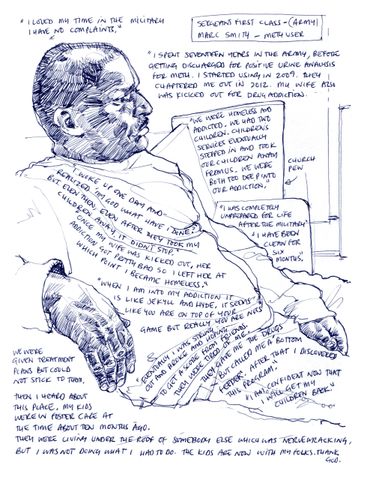 "I LOVED MY TIME IN THE MILITARY
I HAVE NO COMPLAINTS."
SERGEANT FIRST CLASS - (ARMY)
MARC SMITH - METH USER
"I SPENT SEVENTEEN YEARS IN THE ARMY, BEFORE
GETTING DISCHARGED FOR POSITIVE URINE ANALYSIS
FOR METH. I STARTED USING IN 2009. THEY
CHAPTERED ME OUT IN 2012. MY WIFE ALSO
WAS KICKED OUT FOR DRUG ADDICTION.
"WE WERE HOMELESS AND
ADDICTED. WE HAD TWO
CHILDREN. CHILDREN'S
SERVICES EVENTUALLY
STEPPED IN AND TOOK
OUR CHILDREN AWAY
FROM US. WE WERE
BOTH TOO DEEP INTO
OUR ADDICTION."
CHURCH
PEW
"I WAS COMPLETELY
UNPREPARED FOR LIFE
AFTER THE MILITARY"
"I HAVE BEEN
CLEAN FOR
SIX
MONTHS."
"I WOKE UP ONE DAY AND
REALIZED 'MY GOD WHAT HAVE I DONE'.
BUT EVEN THEN EVEN AFTER THEY TOOK MY
CHILDREN AWAY, IT DIDN'T STOP.
ONCE MY WIFE WAS KICKED OUT, HER
ADDICTION GOT PRETTY BAD SO I LEFT HER AT
WHICH POINT I BECAME HOMELESS."
"WHEN I AM INTO MY ADDICTION IT
IS LIKE JEKYLL AND HYDE, IT SEEMS
LIKE YOU ARE ON TOP OF YOUR
GAME BUT REALLY YOU ARE NOT."
"EVENTUALLY I WAS STRUNG
OUT AND BROKE AND HOPING
TO GET A SCORE FROM FRIENDS.
THEY WERE TIRED OF
THEY GAVE ME THE DRUGS
BUT CALLED ME A BOTTOM
FEEDER. AFTER THAT I DISCOVERED
THIS PROGRAM."
"I AM CONFIDENT NOW THAT
I WILL GET MY
CHILDREN BACK"
WE WERE
GIVEN TREATMENT
PLANS BUT COULD
NOT STICK TO THEM,
THEN I HEARD ABOUT
THIS PLACE, MY KIDS
WERE IN FOSTER CARE AT
THE TIME ABOUT TEN MONTHS AGO.
THEY WERE LIVING UNDER THE ROOF OF SOMEBODY ELSE WHICH WAS NERVEWRACKING,
BUT I WAS NOT DOING WHAT I HAD TO DO. THE KIDS ARE NOW WITH MY FOLKS. THANK
GOD.